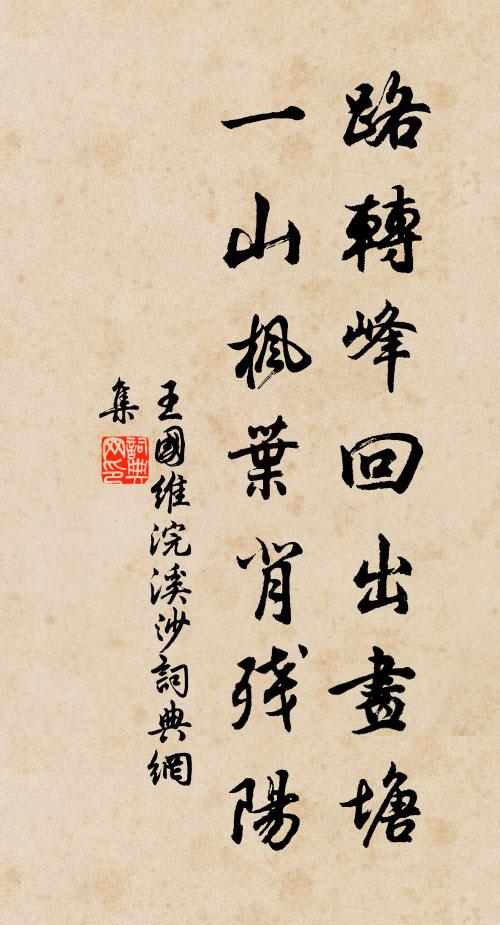 路轉峰回出畫塘
一山楓葉背殘陽
王國維浣溪沙詞典網
集
詞典
网印